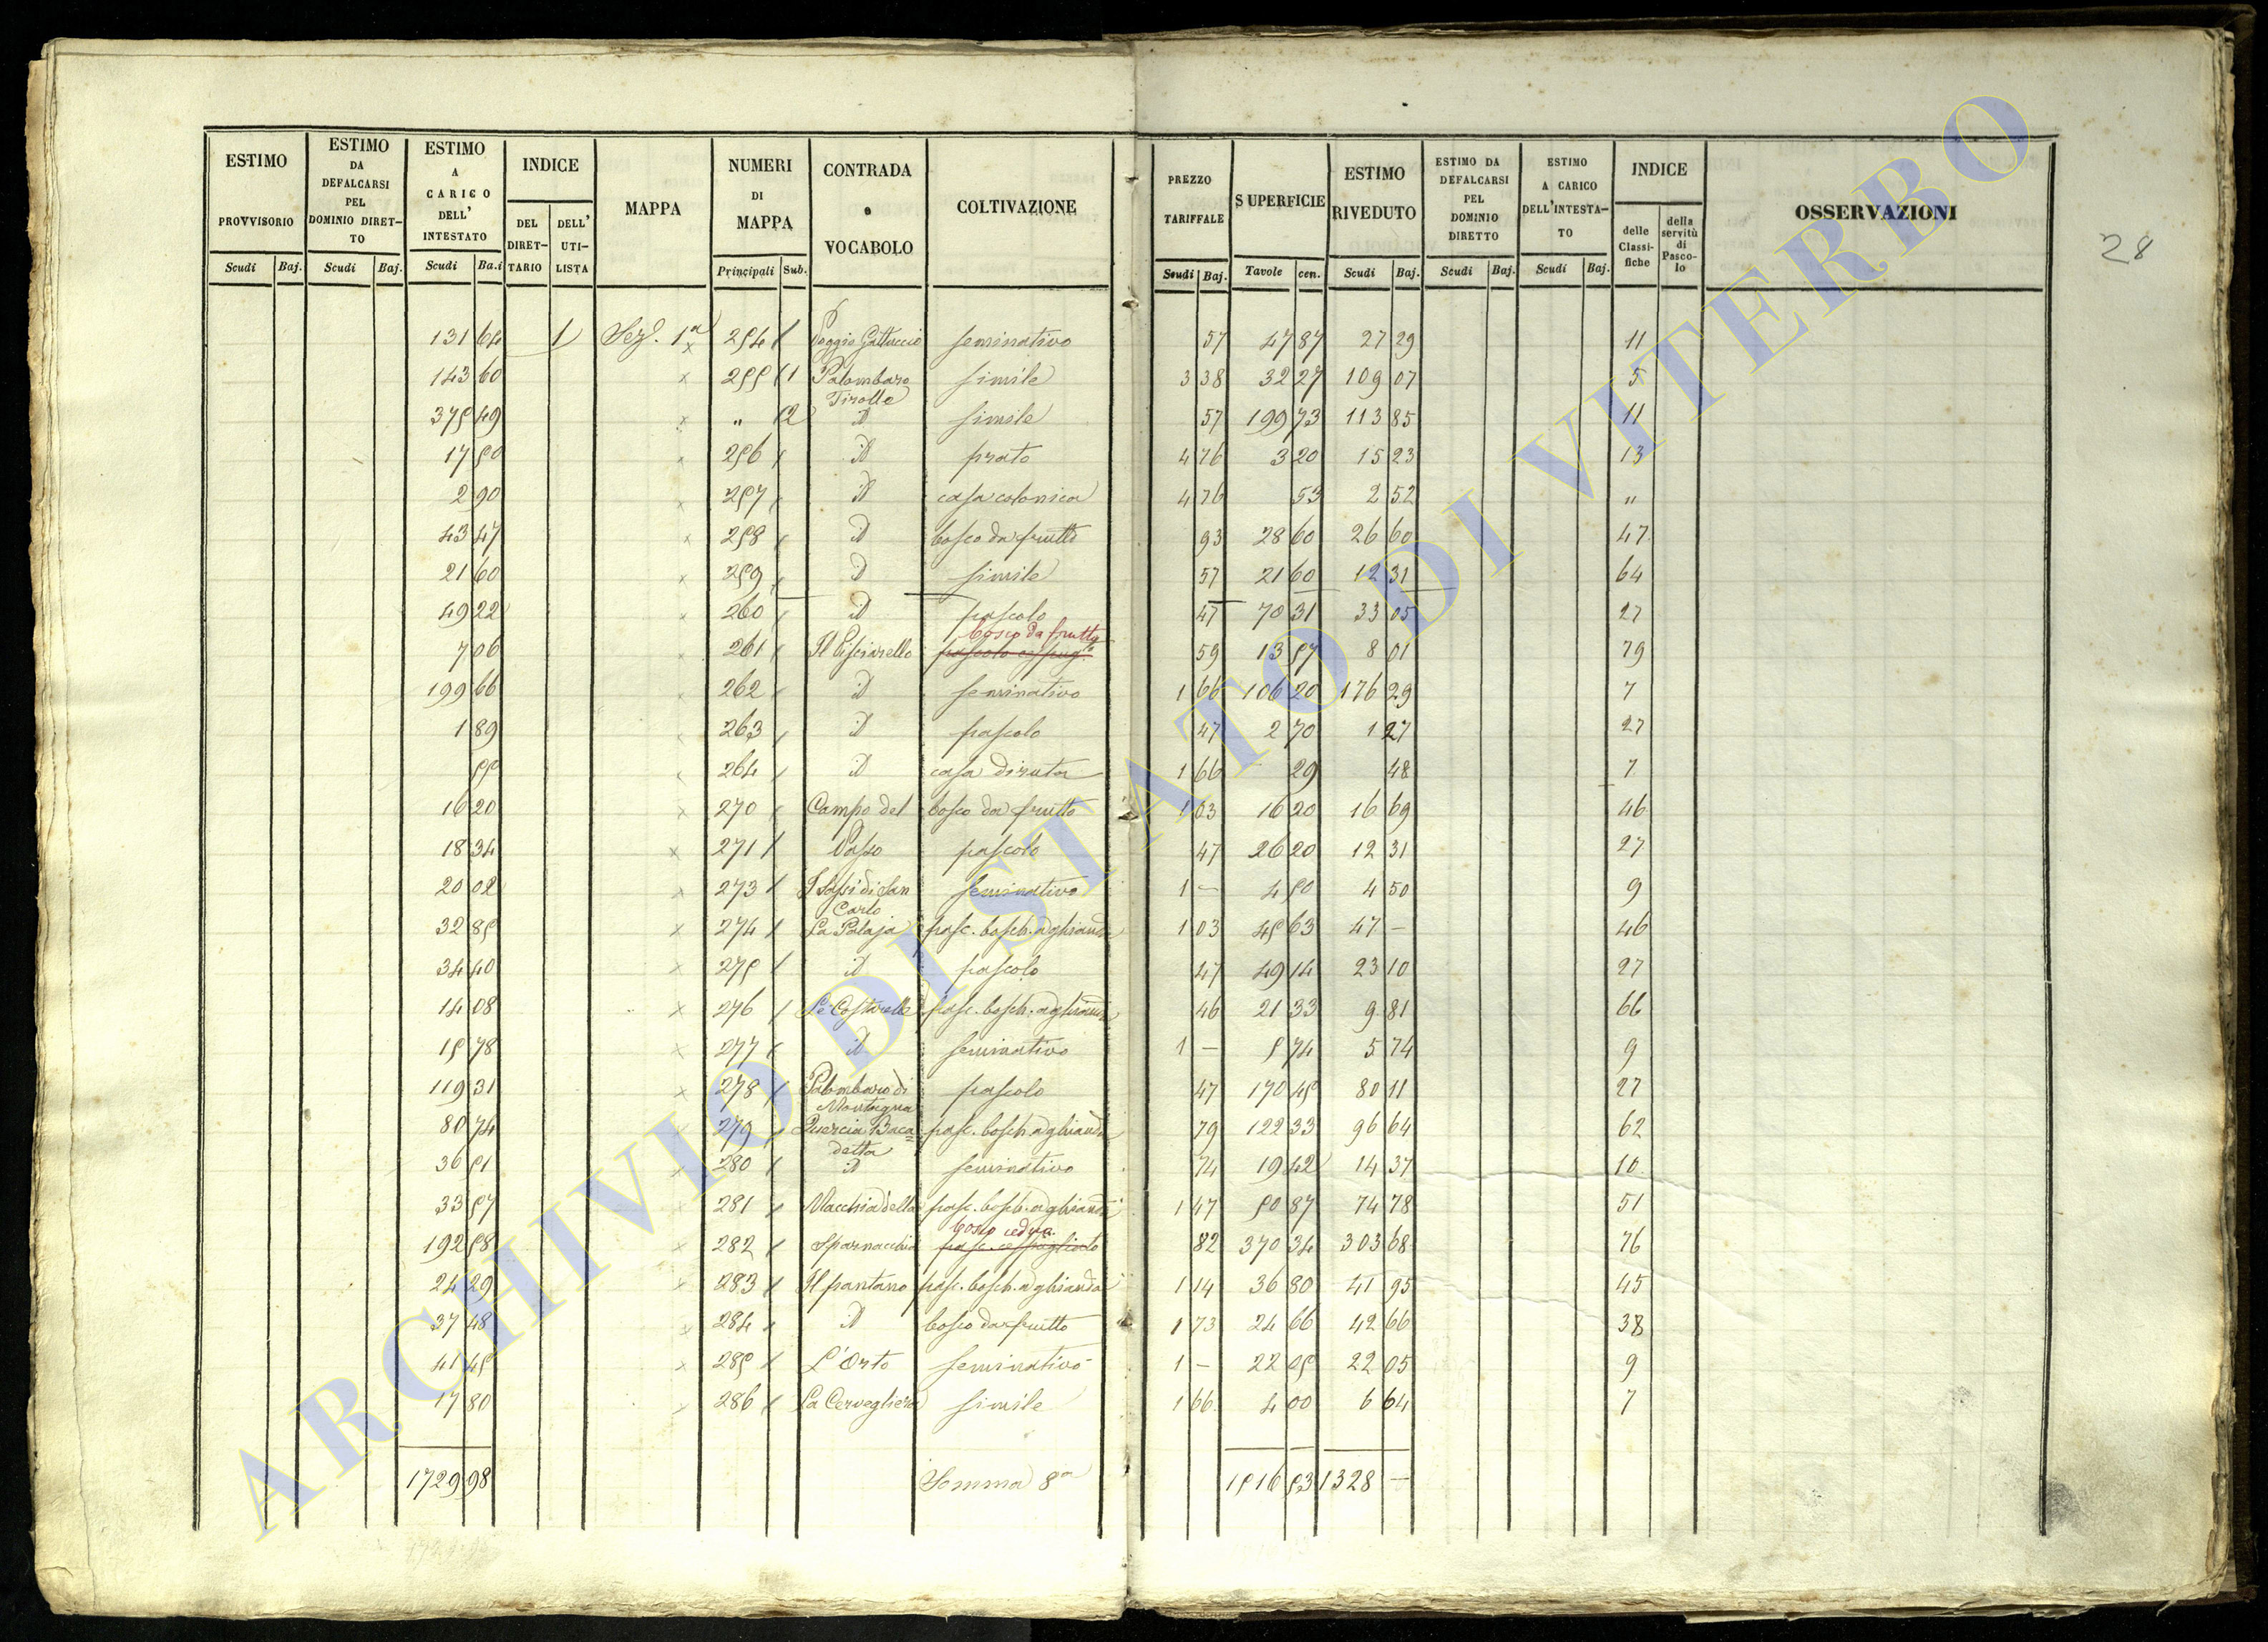 ESTIMO PROVVISORIO
ESTIMO DA DEFALCARSI PEL DOMINIO DIRET-TO
ESTIMO A CARICO DELL' INTESTATO
INDICE
DEL DIRET-TARIO
DELL' UTI-LISTA
MAPPA
NUMERI DI MAPPA
CONTRADA o VOCABOLO
COLTIVAZIONE
PREZZO TARIFFALE
SUPERFICIE
ESTIMO RIVEDUTO
ESTIMO DA DEFALCARSI PEL DOMINIO DIRETTO
ESTIMO A CARICO DELL'INTESTA-TO
INDICE
delle Classi-fiche
della servitù di Pasco-lo
OSSERVAZIONI
28
Scudi Baj. Scudi Baj. Scudi Ba.i Principali Sub. Scudi Baj. Tavole cen. Scudi Baj. Scudi Baj. Scudi Baj.
131 64 1 Sez. 1a 254 Poggio Gattuccio seminativo 57 47 87 27 29 11
143 60 255 1 Palombaro Tirolle simile 3 38 32 27 109 07 5
375 49 " 2 id simile 57 199 73 113 85 11
17 50 256 id prato 4 76 3 20 15 23 13
2 90 257 id casa colonica 4 76 53 2 52 "
43 47 258 id bosco da frutto 93 28 60 26 60 47
21 60 259 id simile 57 21 60 12 31 64
49 22 260 id pascolo 47 70 31 33 05 27
7 06 261 Il Pisciarello bosco da frutto pascolo cespug.to 59 13 57 8 01 79
199 66 262 id seminativo 1 66 106 20 176 29 7
1 89 263 id pascolo 47 2 70 1 27 27
55 264 id casa diruta 1 66 29 48 7
16 20 270 Campo del bosco da frutto 1 03 16 20 16 69 46
18 34 271 Passo pascolo 47 26 20 12 31 27
20 02 273 I Sassi di San Carlo seminativo 1 — 4 50 4 50 9
32 85 274 La Palaja pasc. bosch. a ghianda 1 03 45 63 47 — 46
34 40 275 id pascolo 47 49 14 23 10 27
14 08 276 Le Costarelle pasc. bosch. a ghianda 46 21 33 9 81 66
15 78 277 id seminativo 1 — 5 74 5 74 9
119 31 278 Palombaro di Montagna pascolo 47 170 45 80 11 27
80 74 279 Quercia Baca detta pasc. bosch. a ghianda 79 122 33 96 64 62
36 51 280 id seminativo 74 19 42 14 37 10
33 57 281 Macchia della pasc. bosch. a ghianda 1 47 50 87 74 78 51
192 58 282 Sparnacchia bosco ceduo pasc. cespugliato 82 370 34 303 68 76
24 29 283 Il pantano pasc. bosch. a ghianda 1 14 36 80 41 95 45
37 48 284 id bosco da frutto 1 73 24 66 42 66 38
41 45 285 L'Orto seminativo 1 — 22 05 22 05 9
17 80 286 La Cervegliera simile 1 66 4 00 6 64 7
1729 98 Somma 8a 1516 53 1328 —
ARCHIVIO DI STATO DI VITERBO